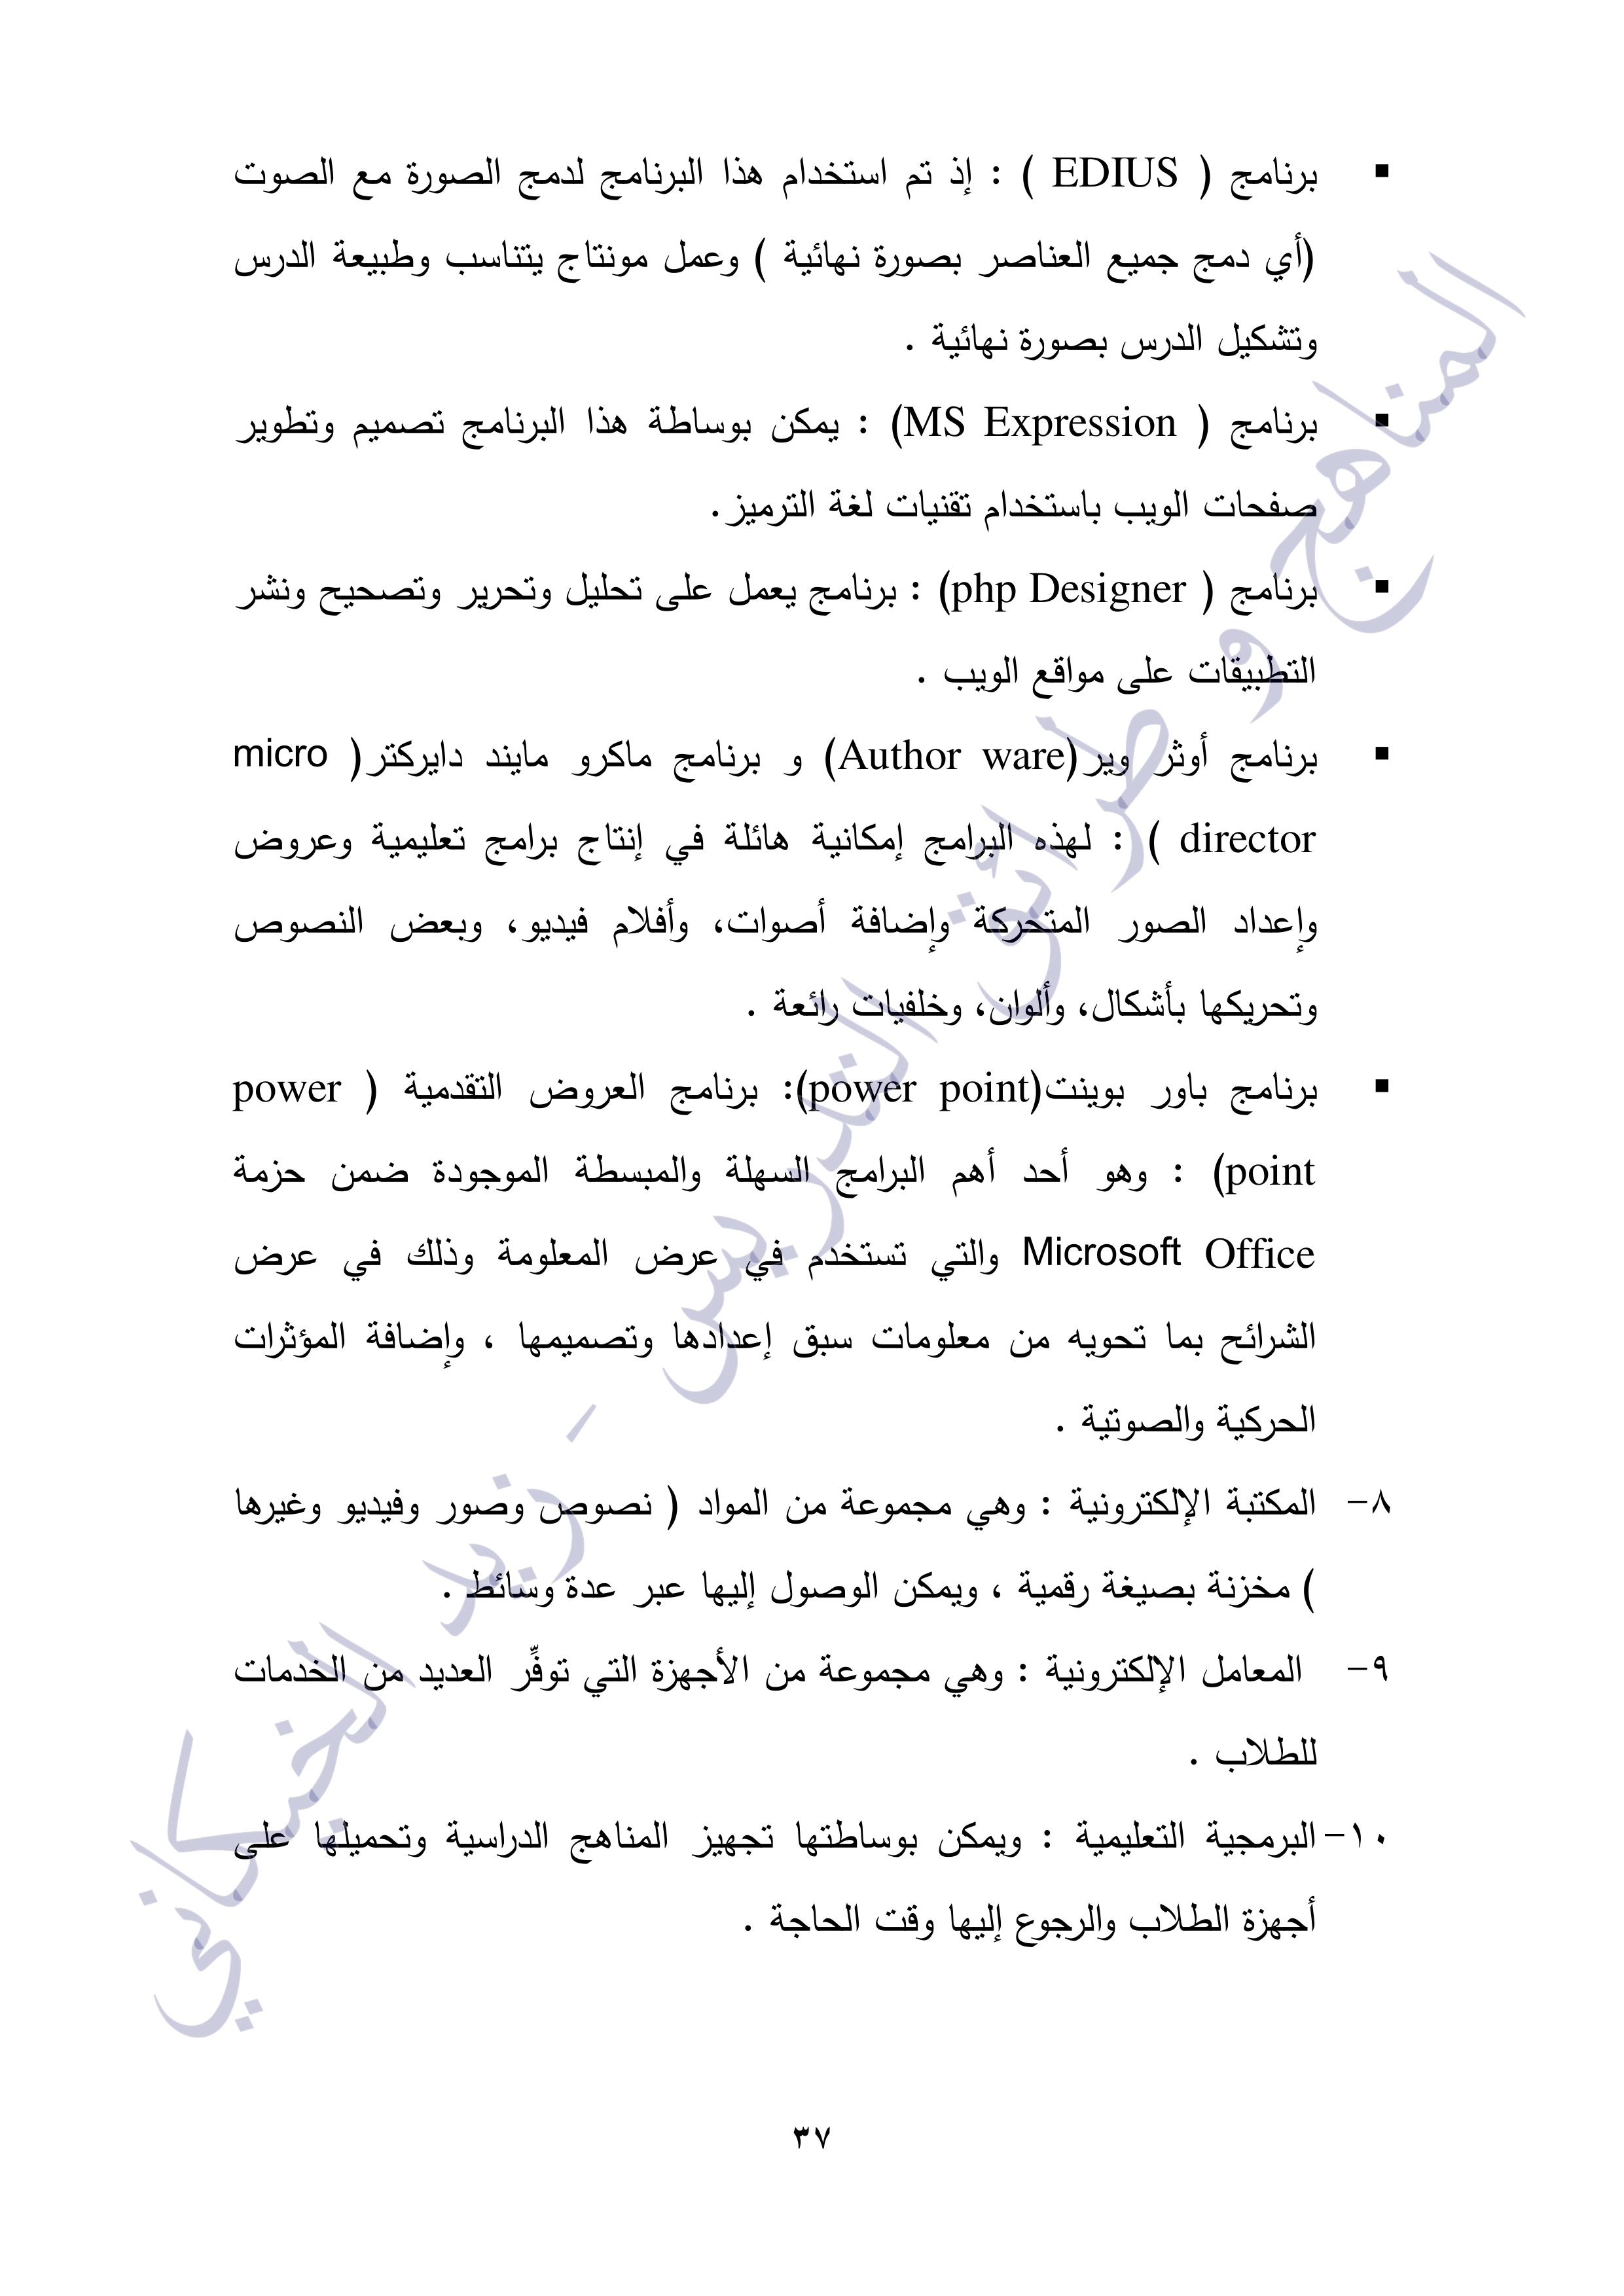 ▪ برنامج ( EDIUS ) : إذ تم استخدام هذا البرنامج لدمج الصورة مع الصوت
(أي دمج جميع العناصر بصورة نهائية ) وعمل مونتاج يتناسب وطبيعة الدرس
وتشكيل الدرس بصورة نهائية .
▪ برنامج ( MS Expression) : يمكن بوساطة هذا البرنامج تصميم وتطوير
صفحات الويب باستخدام تقنيات لغة الترميز.
▪ برنامج ( php Designer) : برنامج يعمل على تحليل وتحرير وتصحيح ونشر
التطبيقات على مواقع الويب .
▪ برنامج أوثر وير(Author ware) و برنامج ماكرو مايند دايركتر( micro
director ) : لهذه البرامج إمكانية هائلة في إنتاج برامج تعليمية وعروض
وإعداد الصور المتحركة وإضافة أصوات، وأفلام فيديو، وبعض النصوص
وتحريكها بأشكال، وألوان، وخلفيات رائعة .
▪ برنامج باور بوينت(power point): برنامج العروض التقدمية ( power
point) : وهو أحد أهم البرامج السهلة والمبسطة الموجودة ضمن حزمة
Microsoft Office والتي تستخدم في عرض المعلومة وذلك في عرض
الشرائح بما تحويه من معلومات سبق إعدادها وتصميمها ، وإضافة المؤثرات
الحركية والصوتية .
٨- المكتبة الإلكترونية : وهي مجموعة من المواد ( نصوص وصور وفيديو وغيرها
) مخزنة بصيغة رقمية ، ويمكن الوصول إليها عبر عدة وسائط .
٩- المعامل الإلكترونية : وهي مجموعة من الأجهزة التي توفِّر العديد من الخدمات
للطلاب .
١٠- البرمجية التعليمية : ويمكن بوساطتها تجهيز المناهج الدراسية وتحميلها على
أجهزة الطلاب والرجوع إليها وقت الحاجة .
٣٧
المناهج و طرائق التدريس - زيد الخيكاني